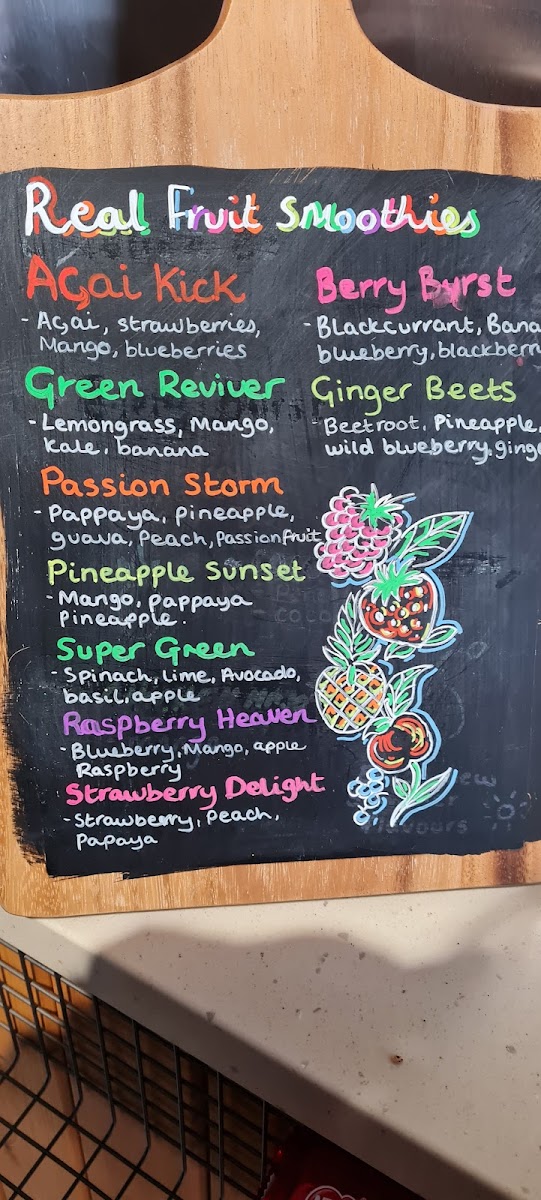 Real Fruit Smoothies
AÇai Kick
- AÇai, strawberries,
Mango, blueberries
Green Reviver
- Lemongrass, Mango,
Kale, banana
Passion Storm
- Pappaya, pineapple,
guava, Peach, Passionfruit
Pineapple Sunset
- Mango, pappaya
Pineapple.
Super Green
- Spinach, lime, Avocado,
basil, apple
Raspberry Heaven
- Blueberry, Mango, apple
Raspberry
Strawberry Delight
- Strawberry, Peach,
Papaya
Berry Burst
- Blackcurrant, Bana
blueberry, blackberr
Ginger Beets
- Beetroot, Pineapple,
wild blueberry, ginge
flavours